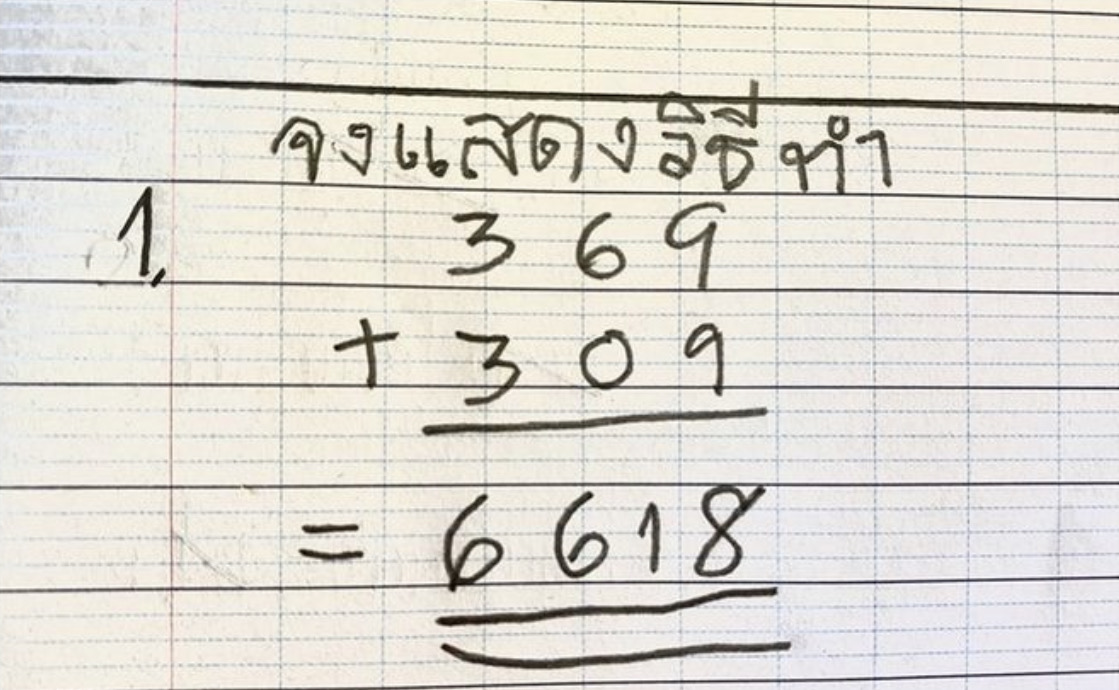 จงแสดงวิธีทำ
1. 369
+ 309
= 6618